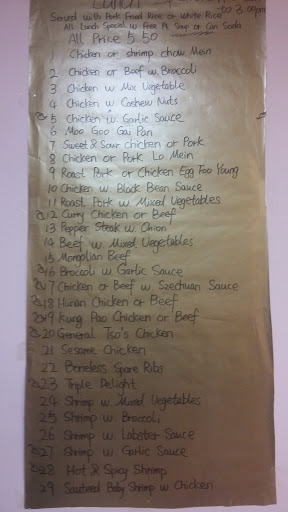 to 3:00pm
Served with Pork Fried Rice or White Rice
All Lunch Special w Free Pt. Soup or Can Soda
All Price 5.50
Chicken or shrimp chow Mein
2 Chicken or Beef w. Broccoli
3 Chicken w Mix Vegetable
4 Chicken w Cashew Nuts
5 Chicken w. Garlic Sauce
6 Moo Goo Gai Pan
7 Sweet & Sour chicken or Pork
8 Chicken or Pork Lo Mein
9 Roast Pork or Chicken Egg Foo Young
10 Chicken w. Black Bean Sauce
11 Roast Pork w Mixed Vegetables
12 Curry Chicken or Beef
13 Pepper Steak w. Onion
14 Beef w Mixed Vegetables
15 Mongolian Beef
16 Broccoli w Garlic Sauce
17 Chicken or Beef w Szechuan Sauce
18 Hunan Chicken or Beef
19 Kung Pao Chicken or Beef
20 General Tso's Chicken
21 Sesame Chicken
22 Boneless Spare Ribs
23 Triple Delight
24 Shrimp w. Mixed Vegetables
25 Shrimp w. Broccoli
26 Shrimp w. Lobster Sauce
27 Shrimp w. Garlic Sauce
28 Hot & Spicy Shrimp
29 Sauteed Baby Shrimp w Chicken